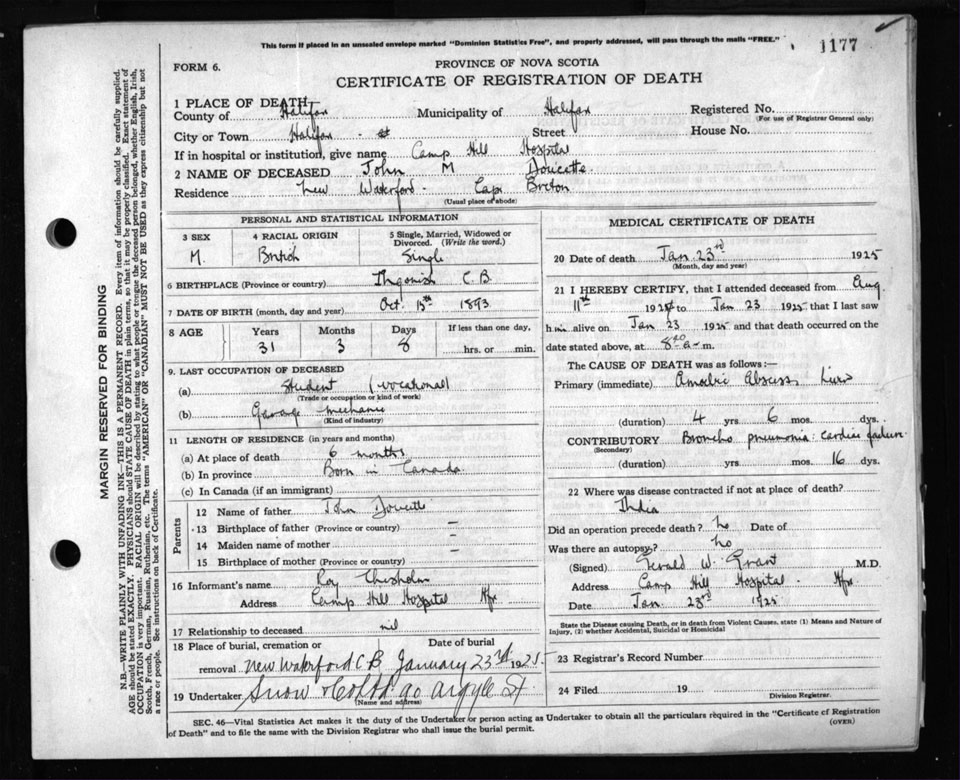 This form if placed in an unsealed envelope marked "Dominion Statistics Free", and properly addressed, will pass through the mails "FREE."
1177
FORM 6.
PROVINCE OF NOVA SCOTIA
CERTIFICATE OF REGISTRATION OF DEATH
1 PLACE OF DEATH
County of Halifax Municipality of Halifax Registered No.
(For use of Registrar General only)
City or Town Halifax Street House No.
If in hospital or institution, give name Camp Hill Hospital
2 NAME OF DECEASED John M Doucette
Residence New Waterford Cape Breton
(Usual place of abode)
PERSONAL AND STATISTICAL INFORMATION
3 SEX 4 RACIAL ORIGIN 5 Single, Married, Widowed or Divorced. (Write the word.)
M. British Single
6 BIRTHPLACE (Province or country) Ingonish C.B
7 DATE OF BIRTH (month, day and year) Oct. 15th 1893
8 AGE Years Months Days If less than one day,
31 3 8 hrs. or min.
9. LAST OCCUPATION OF DECEASED
(a) Student (vocational)
(Trade or occupation or kind of work)
(b) Garage mechanic
(Kind of industry)
11 LENGTH OF RESIDENCE (in years and months)
(a) At place of death 6 months
(b) In province Born in Canada
(c) In Canada (if an immigrant)
Parents
12 Name of father John Doucette
13 Birthplace of father (Province or country) —
14 Maiden name of mother —
15 Birthplace of mother (Province or country)
16 Informant's name Roy Chisholm
Address Camp Hill Hospital Hfx
17 Relationship to deceased nil
18 Place of burial, cremation or Date of burial
removal New Waterford C B January 23rd 1925
19 Undertaker Snow & Co Ltd 90 Argyle St
(Name and address)
MEDICAL CERTIFICATE OF DEATH
20 Date of death Jan 23rd 1925
(Month, day and year)
21 I HEREBY CERTIFY, that I attended deceased from Aug
11th 192 to Jan 23 1925 that I last saw
him alive on Jan 23 1925 and that death occurred on the
date stated above, at 8 a-m.
The CAUSE OF DEATH was as follows:—
Primary (immediate) Amoebic Abscess Liver
(duration) 4 yrs 6 mos. dys.
CONTRIBUTORY Broncho pneumonia: cardiac failure
(Secondary)
(duration) yrs mos. 16 dys.
22 Where was disease contracted if not at place of death?
India
Did an operation precede death? no Date of
Was there an autopsy? no
(Signed) Gerald W. Grant M.D.
Address Camp Hill Hospital Hfx
Date Jan. 23rd 1925
State the Disease causing Death, or in death from Violent Causes, state (1) Means and Nature of Injury, (2) whether Accidental, Suicidal or Homicidal
23 Registrar's Record Number
24 Filed 19
Division Registrar.
SEC. 46—Vital Statistics Act makes it the duty of the Undertaker or person acting as Undertaker to obtain all the particulars required in the "Certificate of Registration
of Death" and to file the same with the Division Registrar who shall issue the burial permit.
(OVER)
MARGIN RESERVED FOR BINDING
N.B.—WRITE PLAINLY WITH UNFADING INK—THIS IS A PERMANENT RECORD. Every item of information should be carefully supplied.
AGE should be stated EXACTLY. PHYSICIANS should STATE CAUSE OF DEATH in plain terms, so that it may be properly classified. Exact statement of
OCCUPATION is very important. RACIAL ORIGIN will be described by stating to what people or tongue the deceased person belonged, whether English, Irish,
Scotch, French, German, Russian, Ruthenian, etc. The terms "AMERICAN" OR "CANADIAN" MUST NOT BE USED as they express citizenship but not
a race or people. See instructions on back of Certificate.